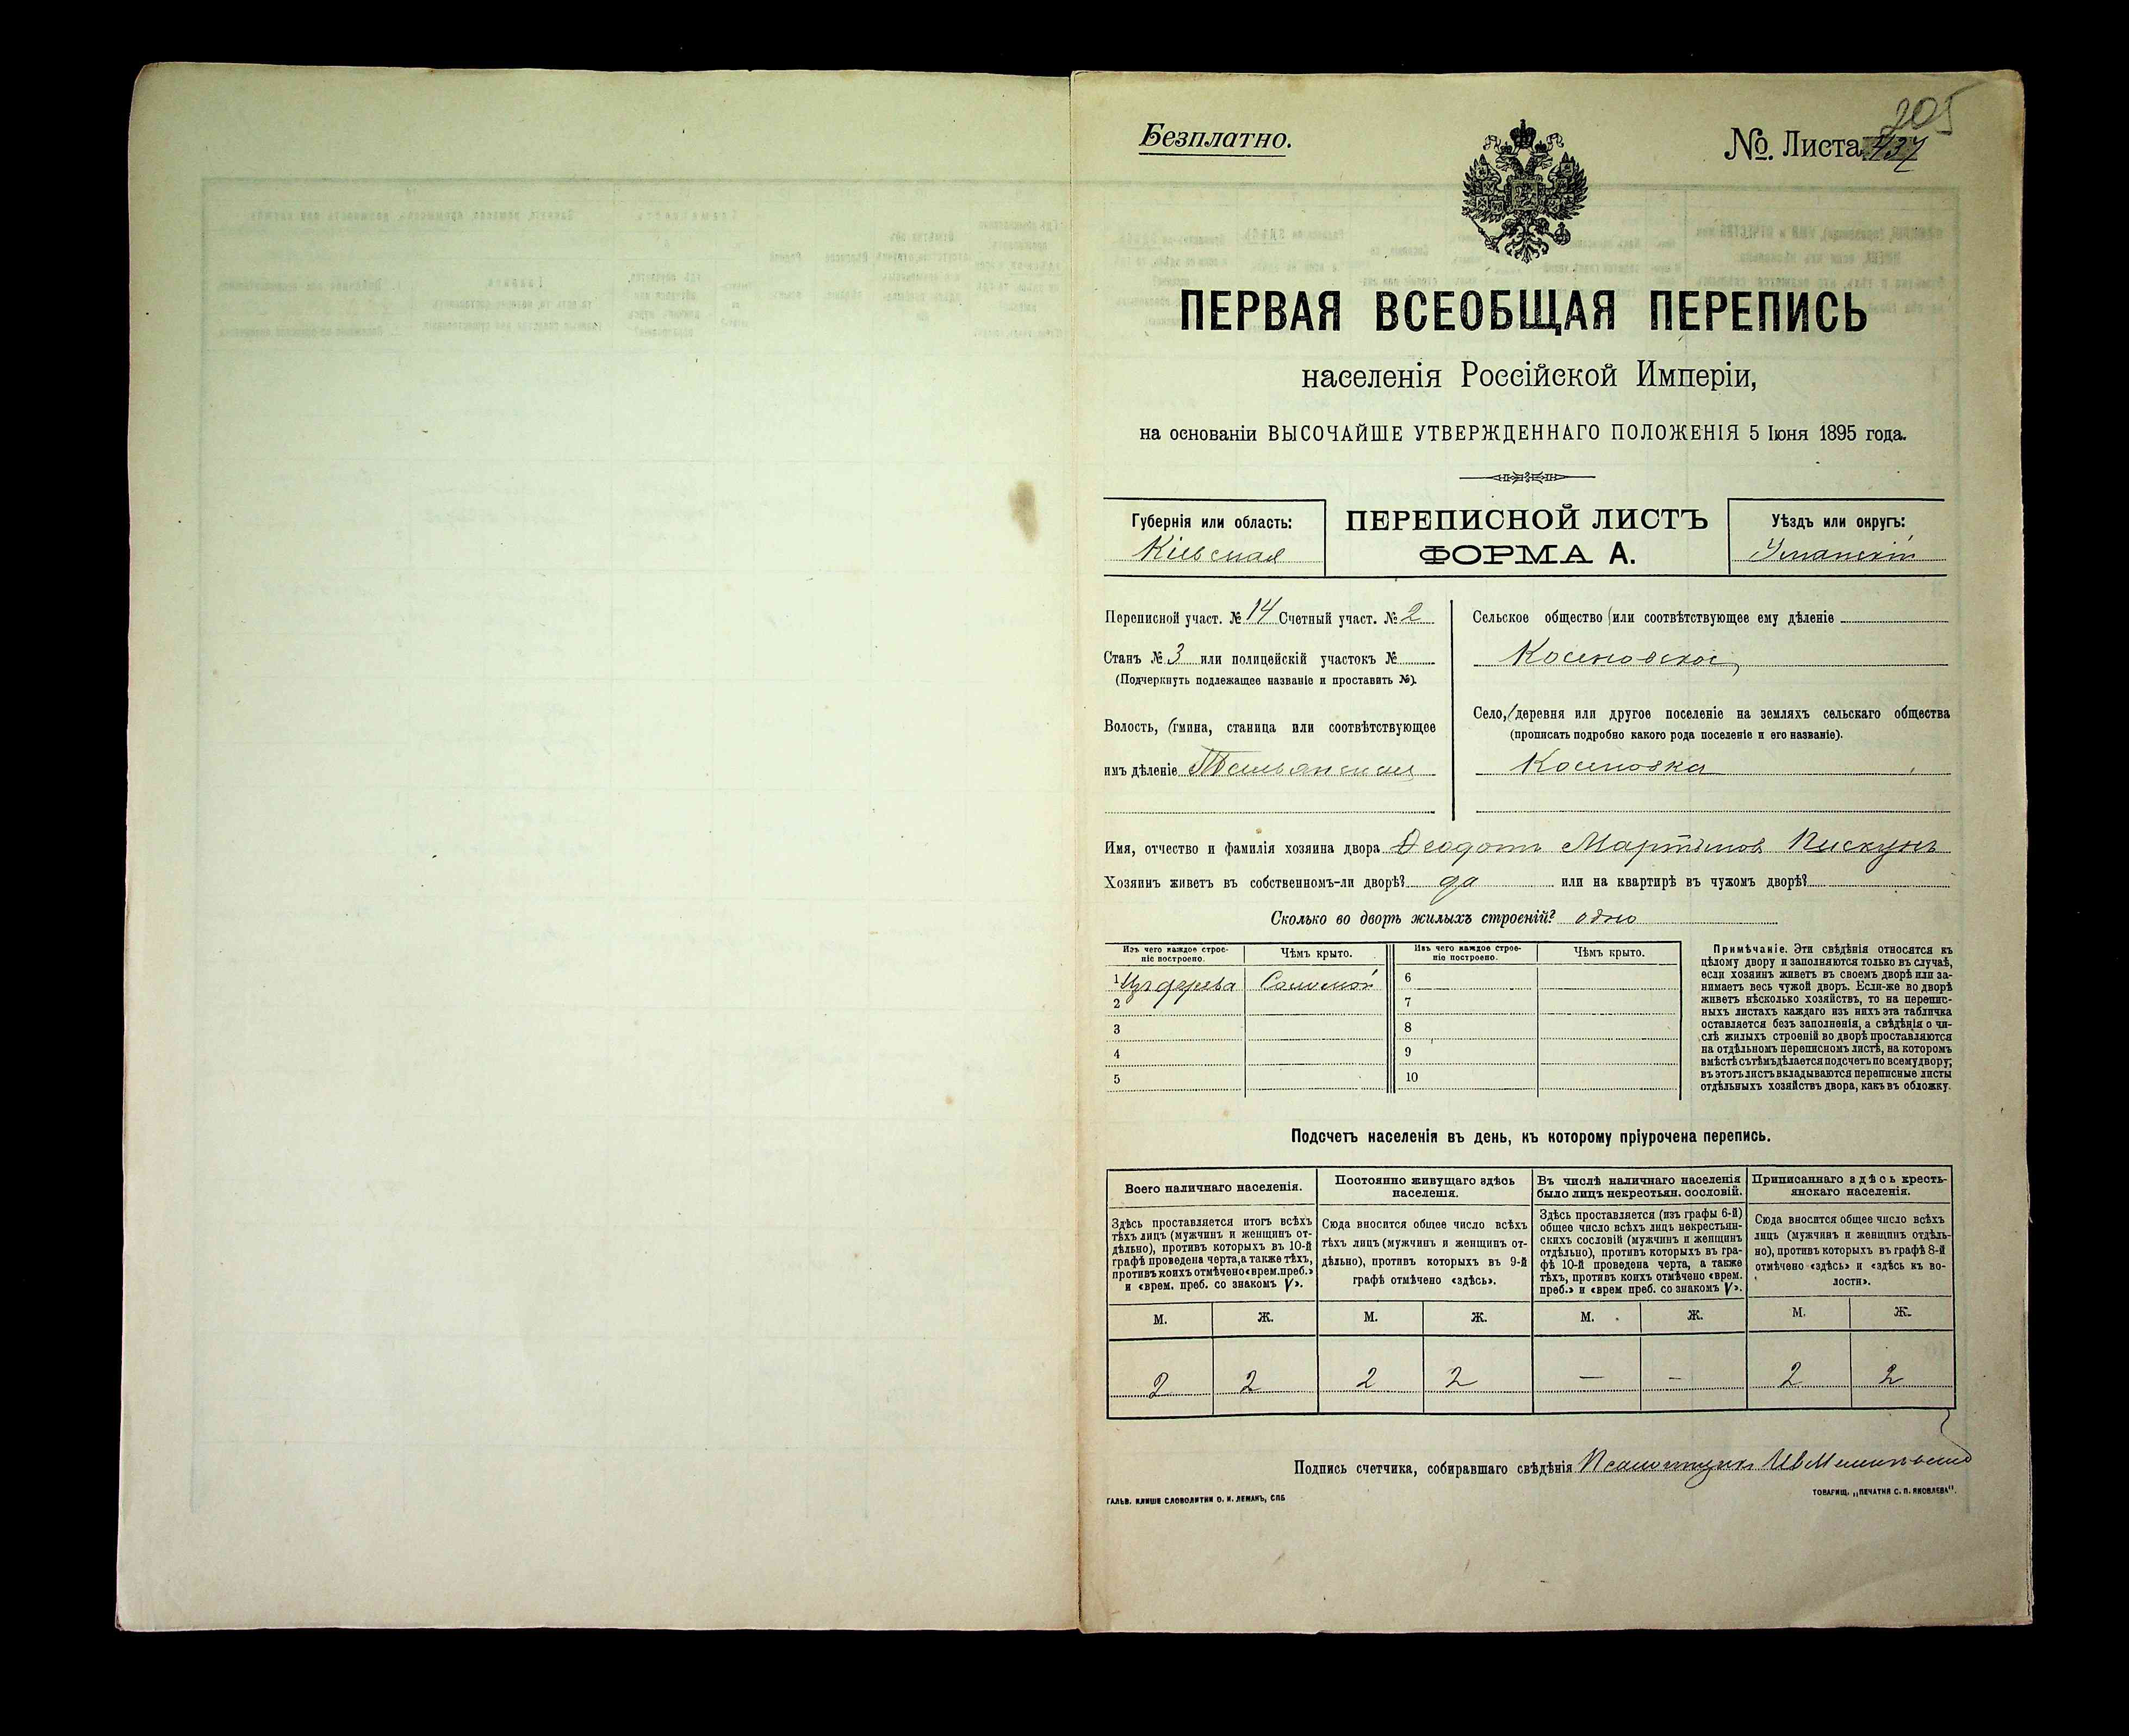 205
Безплатно.
№. Листа 437
ПЕРВАЯ ВСЕОБЩАЯ ПЕРЕПИСЬ
населенія Россійской Имперіи,
на основаніи ВЫСОЧАЙШЕ УТВЕРЖДЕННАГО ПОЛОЖЕНІЯ 5 Іюня 1895 года.
Губернія или область:
Кіевская
ПЕРЕПИСНОЙ ЛИСТЪ
ФОРМА А.
Уѣздъ или округъ:
Уманскій
Переписной участ. № 14 Счетный участ. № 2
Станъ № 3 или полицейскій участокъ №
(Подчеркнуть подлежащее названіе и проставить №).
Волость, (гмина, станица или соотвѣтствующее
имъ дѣленіе Тальянская
Сельское общество (или соотвѣтствующее ему дѣленіе
Косеновское
Село, (деревня или другое поселеніе на земляхъ сельскаго общества
(прописать подробно какого рода поселеніе и его названіе).
Косеновка
Имя, отчество и фамилія хозяина двора Ѳеодотъ Мартыновъ Пискунъ
Хозяинъ живетъ въ собственномъ-ли дворѣ? да или на квартирѣ въ чужомъ дворѣ?
Сколько во дворѣ жилыхъ строеній? одно
Изъ чего каждое строе-
ніе построено.
Чѣмъ крыто.
Изъ чего каждое строе-
ніе построено.
Чѣмъ крыто.
1 Изъ дерева Соломой 6
2 7
3 8
4 9
5 10
Примѣчаніе. Эти свѣдѣнія относятся къ
цѣлому двору и заполняются только въ случаѣ,
если хозяинъ живетъ въ своемъ дворѣ или за-
нимаетъ весь чужой дворъ. Если-же во дворѣ
живетъ нѣсколько хозяйствъ, то на перепис-
ныхъ листахъ каждаго изъ нихъ эта табличка
оставляется безъ заполненія, а свѣдѣнія о чи-
слѣ жилыхъ строеній во дворѣ проставляются
на отдѣльномъ переписномъ листѣ, на которомъ
вмѣстѣ съ тѣмъ дѣлается подсчетъ по всему двору;
въ этотъ листъ вкладываются переписные листы
отдѣльныхъ хозяйствъ двора, какъ въ обложку.
Подсчетъ населенія въ день, къ которому пріурочена перепись.
Всего наличнаго населенія.
Здѣсь проставляется итогъ всѣхъ
тѣхъ лицъ (мужчинъ и женщинъ от-
дѣльно), противъ которыхъ въ 10-й
графѣ проведена черта, а также тѣхъ,
противъ коихъ отмѣчено «врем. преб.»
и «врем. преб. со знакомъ V».
Постоянно живущаго здѣсь
населенія.
Сюда вносится общее число всѣхъ
тѣхъ лицъ (мужчинъ и женщинъ от-
дѣльно), противъ которыхъ въ 9-й
графѣ отмѣчено «здѣсь».
Въ числѣ наличнаго населенія
было лицъ некрестьян. сословій.
Здѣсь проставляется (изъ графы 6-й)
общее число всѣхъ лицъ некрестьян-
скихъ сословій (мужчинъ и женщинъ
отдѣльно), противъ которыхъ въ гра-
фѣ 10-й проведена черта, а также
тѣхъ, противъ коихъ отмѣчено «врем.
преб.» и «врем преб. со знакомъ V».
Приписаннаго здѣсь кресть-
янскаго населенія.
Сюда вносится общее число всѣхъ
лицъ (мужчинъ и женщинъ отдѣль-
но), противъ которыхъ въ графѣ 8-й
отмѣчено «здѣсь» и «здѣсь къ во-
лости».
М. Ж. М. Ж. М. Ж. М. Ж.
2 2 2 2 — — 2 2
Подпись счетчика, собиравшаго свѣдѣнія Псаломщикъ
ГАЛЬВ. КЛИШЕ СЛОВОЛИТНИ О. И. ЛЕМАНЪ, СПБ
ТОВАРИЩ. „ПЕЧАТНЯ С. П. ЯКОВЛЕВА".